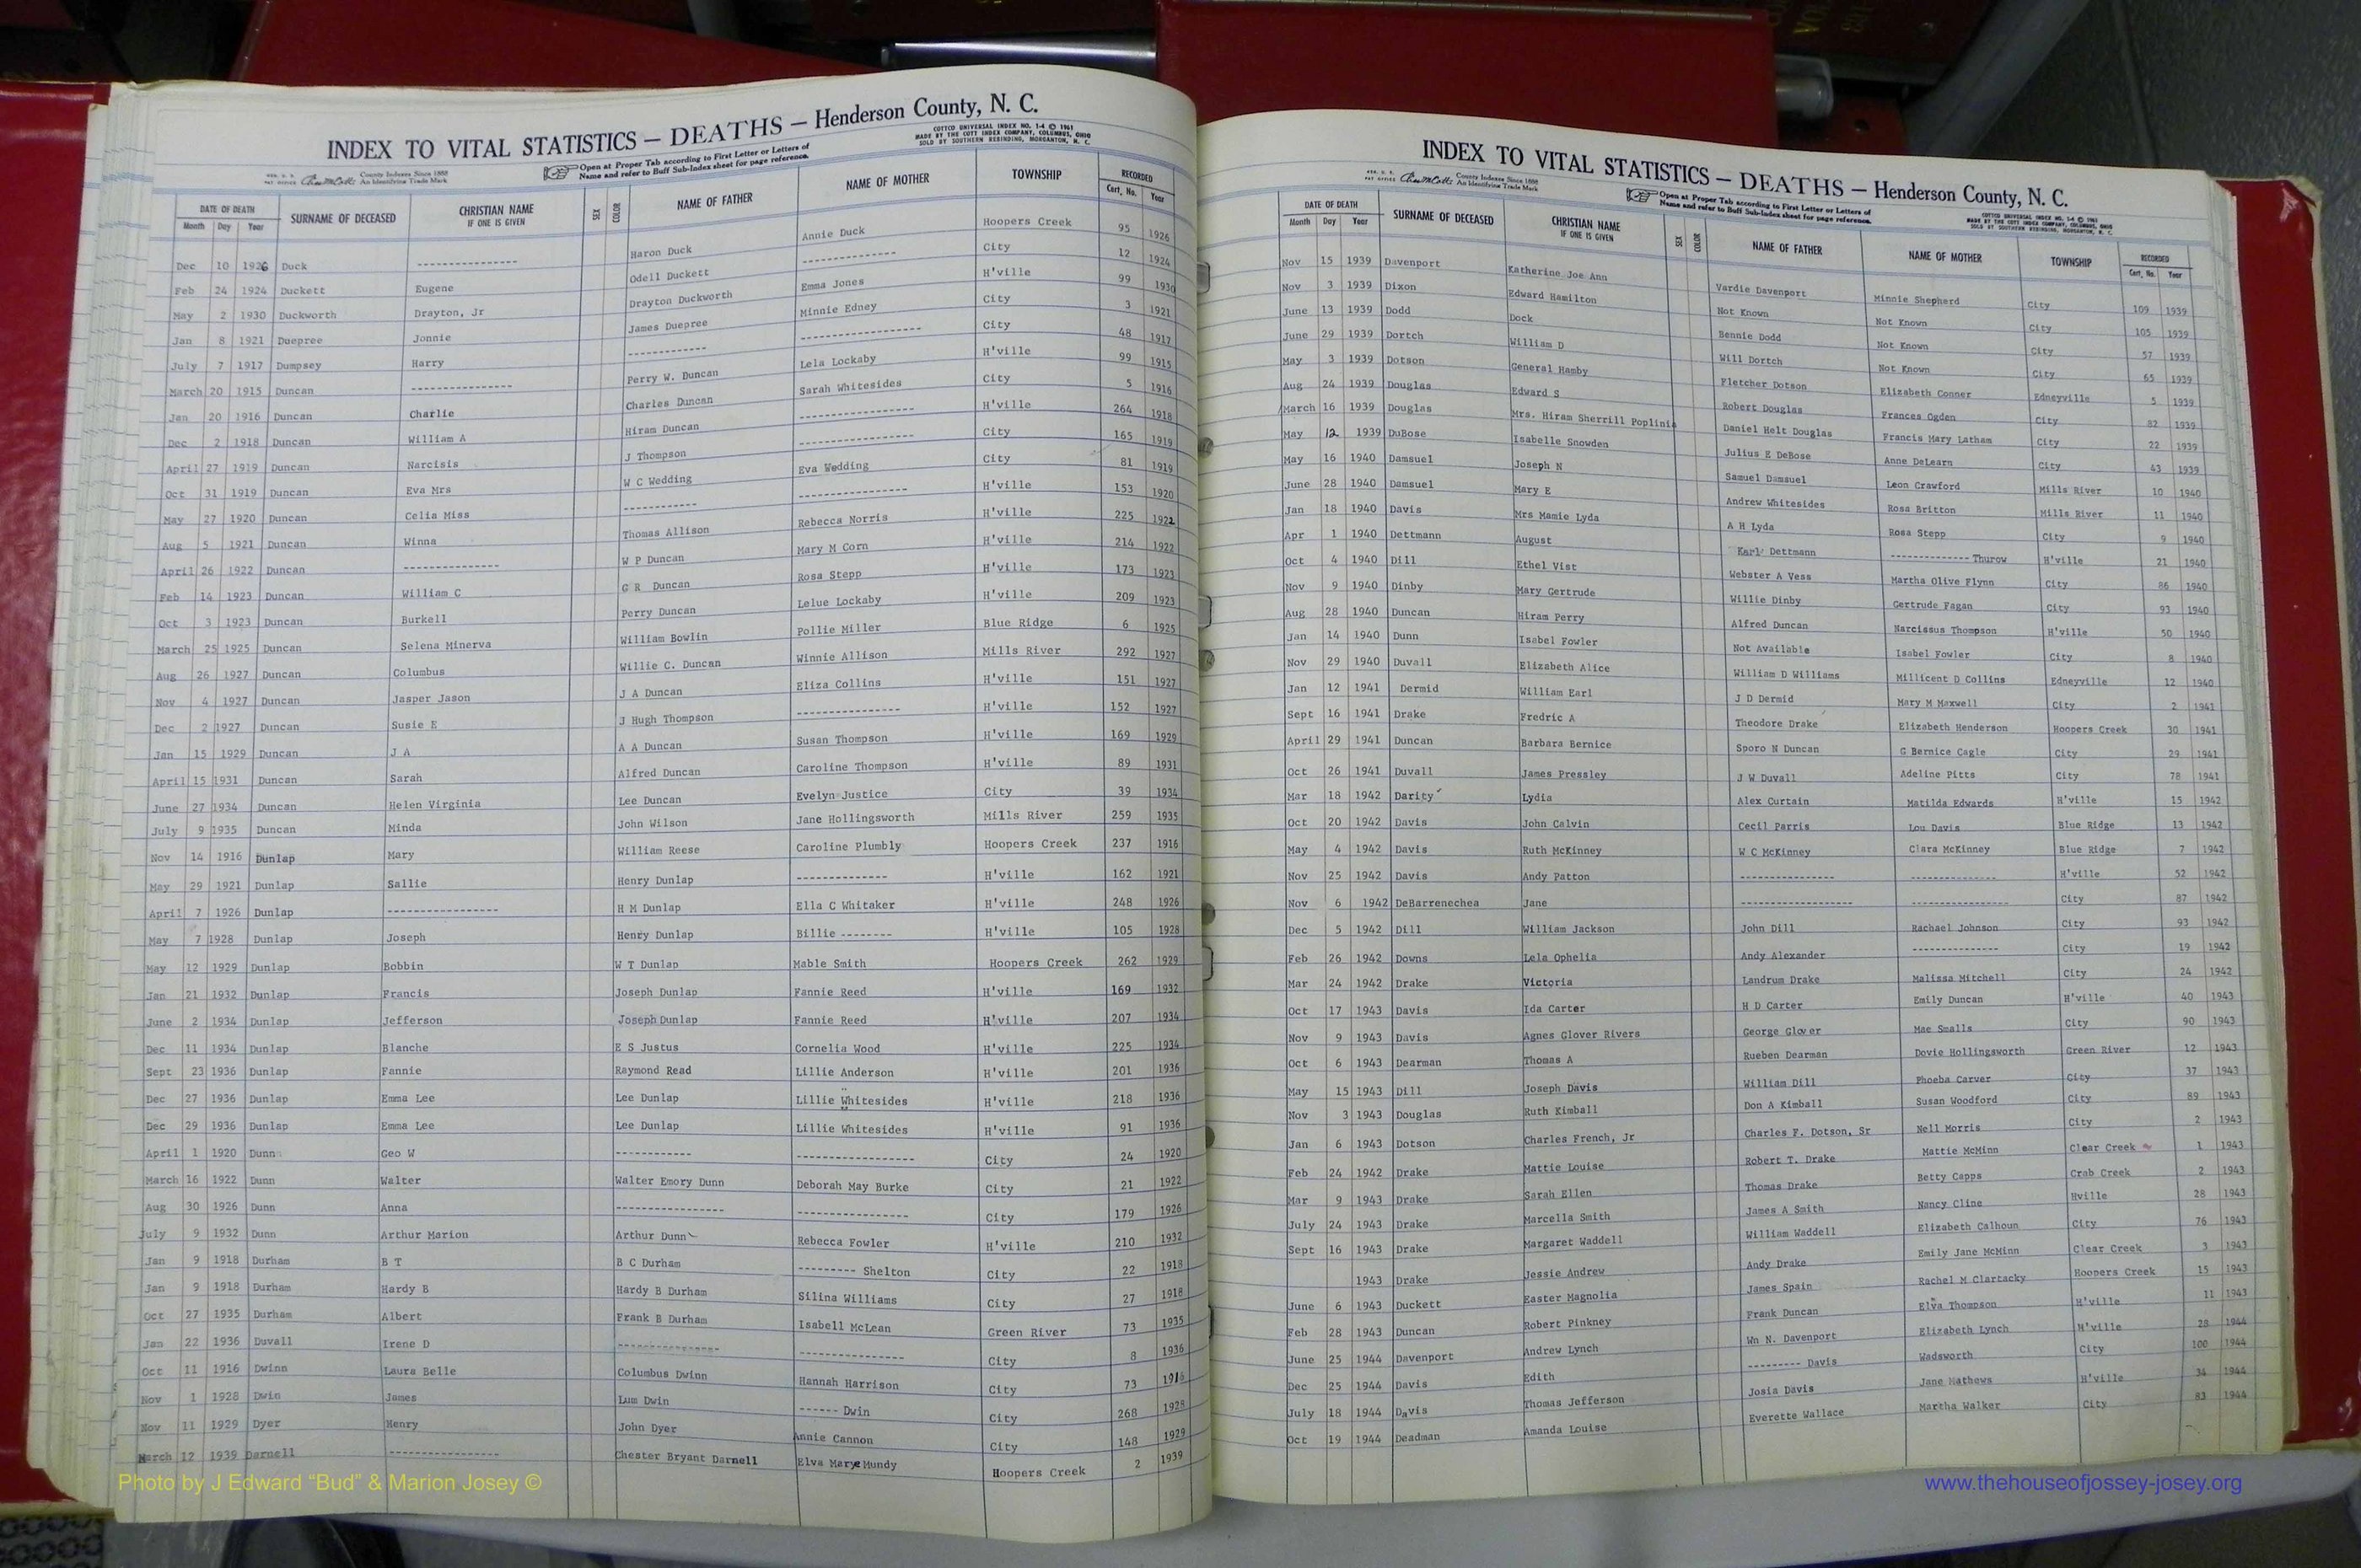 INDEX TO VITAL STATISTICS — DEATHS — Henderson County, N. C.
COTTCO UNIVERSAL INDEX NO. 1-4 © 1961
MADE BY THE COTT INDEX COMPANY, COLUMBUS, OHIO
SOLD BY SOUTHERN REBINDING, MORGANTON, N. C.
County Indexes Since 1888
An Identifying Trade Mark
Open at Proper Tab according to First Letter or Letters of
Name and refer to Buff Sub-Index sheet for page reference.
DATE OF DEATH SURNAME OF DECEASED CHRISTIAN NAME SEX COLOR NAME OF FATHER NAME OF MOTHER TOWNSHIP RECORDED
Month Day Year IF ONE IS GIVEN Cert. No. Year
Dec 10 1926 Duck ---------------- Haron Duck Annie Duck Hoopers Creek 95 1926
Feb 24 1924 Duckett Eugene Odell Duckett ---------------- City 12 1924
May 2 1930 Duckworth Drayton, Jr Drayton Duckworth Emma Jones H'ville 99 1930
Jan 8 1921 Duepree Jonnie James Duepree Minnie Edney City 3 1921
July 7 1917 Dumpsey Harry ------------- --------------------- City 48 1917
March 20 1915 Duncan ---------------- Perry W. Duncan Lela Lockaby H'ville 99 1915
Jan 20 1916 Duncan Charlie Charles Duncan Sarah Whitesides City 5 1916
Dec 2 1918 Duncan William A Hiram Duncan ------------------- H'ville 264 1918
April 27 1919 Duncan Narcisis J Thompson ------------------- City 165 1919
Oct 31 1919 Duncan Eva Mrs W C Wedding Eva Wedding City 81 1919
May 27 1920 Duncan Celia Miss ------------ ------------------ H'ville 153 1920
Aug 5 1921 Duncan Winna Thomas Allison Rebecca Norris H'ville 225 1922
April 26 1922 Duncan --------------- W P Duncan Mary M Corn H'ville 214 1922
Feb 14 1923 Duncan William C G R Duncan Rosa Stepp H'ville 173 1923
Oct 3 1923 Duncan Burkell Perry Duncan Lelue Lockaby H'ville 209 1923
March 25 1925 Duncan Selena Minerva William Bowlin Pollie Miller Blue Ridge 6 1925
Aug 26 1927 Duncan Columbus Willie C. Duncan Winnie Allison Mills River 292 1927
Nov 4 1927 Duncan Jasper Jason J A Duncan Eliza Collins H'ville 151 1927
Dec 2 1927 Duncan Susie E J Hugh Thompson ----------------- H'ville 152 1927
Jan 15 1929 Duncan J A A A Duncan Susan Thompson H'ville 169 1929
April 15 1931 Duncan Sarah Alfred Duncan Caroline Thompson H'ville 89 1931
June 27 1934 Duncan Helen Virginia Lee Duncan Evelyn Justice City 39 1934
July 9 1935 Duncan Minda John Wilson Jane Hollingsworth Mills River 259 1935
Nov 14 1916 Dunlap Mary William Reese Caroline Plumbly Hoopers Creek 237 1916
May 29 1921 Dunlap Sallie Henry Dunlap -------------- H'ville 162 1921
April 7 1926 Dunlap ----------------- H M Dunlap Ella C Whitaker H'ville 248 1926
May 7 1928 Dunlap Joseph Henry Dunlap Billie -------- H'ville 105 1928
May 12 1929 Dunlap Bobbin W T Dunlap Mable Smith Hoopers Creek 262 1929
Jan 21 1932 Dunlap Francis Joseph Dunlap Fannie Reed H'ville 169 1932
June 2 1934 Dunlap Jefferson Joseph Dunlap Fannie Reed H'ville 207 1934
Dec 11 1934 Dunlap Blanche E S Justus Cornelia Wood H'ville 225 1934
Sept 23 1936 Dunlap Fannie Raymond Read Lillie Anderson H'ville 201 1936
Dec 27 1936 Dunlap Emma Lee Lee Dunlap Lillie Whitesides H'ville 218 1936
Dec 29 1936 Dunlap Emma Lee Lee Dunlap Lillie Whitesides H'ville 91 1936
April 1 1920 Dunn Geo W ------------ ------------------ City 24 1920
March 16 1922 Dunn Walter Walter Emory Dunn Deborah May Burke City 21 1922
Aug 30 1926 Dunn Anna ----------------- ----------------- City 179 1926
July 9 1932 Dunn Arthur Marion Arthur Dunn Rebecca Fowler H'ville 210 1932
Jan 9 1918 Durham B T B C Durham --------- Shelton City 22 1918
Jan 9 1918 Durham Hardy B Hardy B Durham Silina Williams City 27 1918
Oct 27 1935 Durham Albert Frank B Durham Isabell McLean Green River 73 1935
Jan 22 1936 Duvall Irene D ---------------- ---------------- City 8 1936
Oct 11 1916 Dwinn Laura Belle Columbus Dwinn Hannah Harrison City 73 1916
Nov 1 1928 Dwin James Lum Dwin ------ Dwin City 268 1928
Nov 11 1929 Dyer Henry John Dyer Annie Cannon City 148 1929
March 12 1939 Darnell ----------------- Chester Bryant Darnell Elva Marye Mundy Hoopers Creek 2 1939
INDEX TO VITAL STATISTICS — DEATHS — Henderson County, N. C.
County Indexes Since 1888
An Identifying Trade Mark
Open at Proper Tab according to First Letter or Letters of
Name and refer to Buff Sub-Index sheet for page reference.
COTTCO UNIVERSAL INDEX NO. 1-4 © 1961
MADE BY THE COTT INDEX COMPANY, COLUMBUS, OHIO
SOLD BY SOUTHERN REBINDING, MORGANTON, N. C.
DATE OF DEATH SURNAME OF DECEASED CHRISTIAN NAME SEX COLOR NAME OF FATHER NAME OF MOTHER TOWNSHIP RECORDED
Month Day Year IF ONE IS GIVEN Cert. No. Year
Nov 15 1939 Davenport Katherine Joe Ann Vardie Davenport Minnie Shepherd City 109 1939
Nov 3 1939 Dixon Edward Hamilton Not Known Not Known City 105 1939
June 13 1939 Dodd Dock Bennie Dodd Not Known City 57 1939
June 29 1939 Dortch William D Will Dortch Not Known City 65 1939
May 3 1939 Dotson General Hamby Fletcher Dotson Elizabeth Conner Edneyville 5 1939
Aug 24 1939 Douglas Edward S Robert Douglas Frances Ogden City 82 1939
March 16 1939 Douglas Mrs. Hiram Sherrill Poplinis Daniel Helt Douglas Francis Mary Latham City 22 1939
May 12 1939 DuBose Isabelle Snowden Julius E DeBose Anne DeLearn City 43 1939
May 16 1940 Damsuel Joseph N Samuel Damsuel Leon Crawford Mills River 10 1940
June 28 1940 Damsuel Mary E Andrew Whitesides Rosa Britton Mills River 11 1940
Jan 18 1940 Davis Mrs Mamie Lyda A H Lyda Rosa Stepp City 9 1940
Apr 1 1940 Dettmann August Karl Dettmann ------------- Thurow H'ville 21 1940
Oct 4 1940 Dill Ethel Vist Webster A Vess Martha Olive Flynn City 86 1940
Nov 9 1940 Dinby Mary Gertrude Willie Dinby Gertrude Fagan City 93 1940
Aug 28 1940 Duncan Hiram Perry Alfred Duncan Narcissus Thompson H'ville 50 1940
Jan 14 1940 Dunn Isabel Fowler Not Available Isabel Fowler City 8 1940
Nov 29 1940 Duvall Elizabeth Alice William D Williams Millicent D Collins Edneyville 12 1940
Jan 12 1941 Dermid William Earl J D Dermid Mary M Maxwell City 2 1941
Sept 16 1941 Drake Fredric A Theodore Drake Elizabeth Henderson Hoopers Creek 30 1941
April 29 1941 Duncan Barbara Bernice Sporo N Duncan G Bernice Cagle City 29 1941
Oct 26 1941 Duvall James Pressley J W Duvall Adeline Pitts City 78 1941
Mar 18 1942 Darity Lydia Alex Curtain Matilda Edwards H'ville 15 1942
Oct 20 1942 Davis John Calvin Cecil Parris Lou Davis Blue Ridge 13 1942
May 4 1942 Davis Ruth McKinney W C McKinney Clara McKinney Blue Ridge 7 1942
Nov 25 1942 Davis Andy Patton --------------- -------------- H'ville 52 1942
Nov 6 1942 DeBarrenechea Jane ------------------ ---------------- City 87 1942
Dec 5 1942 Dill William Jackson John Dill Rachael Johnson City 93 1942
Feb 26 1942 Downs Lela Ophelia Andy Alexander -------------- City 19 1942
Mar 24 1942 Drake Victoria Landrum Drake Malissa Mitchell City 24 1942
Oct 17 1943 Davis Ida Carter H D Carter Emily Duncan H'ville 40 1943
Nov 9 1943 Davis Agnes Glover Rivers George Glover Mae Smalls City 90 1943
Oct 6 1943 Dearman Thomas A Rueben Dearman Dovie Hollingsworth Green River 12 1943
May 15 1943 Dill Joseph Davis William Dill Phoeba Carver City 37 1943
Nov 3 1943 Douglas Ruth Kimball Don A Kimball Susan Woodford City 89 1943
Jan 6 1943 Dotson Charles French, Jr Charles F. Dotson, Sr Nell Morris City 2 1943
Feb 24 1942 Drake Mattie Louise Robert T. Drake Mattie McMinn Clear Creek 1 1943
Mar 9 1943 Drake Sarah Ellen Thomas Drake Betty Capps Crab Creek 2 1943
July 24 1943 Drake Marcella Smith James A Smith Nancy Cline Hville 28 1943
Sept 16 1943 Drake Margaret Waddell William Waddell Elizabeth Calhoun City 76 1943
1943 Drake Jessie Andrew Andy Drake Emily Jane McMinn Clear Creek 3 1943
June 6 1943 Duckett Easter Magnolia James Spain Rachel M Clartacky Hoopers Creek 15 1943
Feb 28 1943 Duncan Robert Pinkney Frank Duncan Elva Thompson H'ville 11 1943
June 25 1944 Davenport Andrew Lynch Wn N. Davenport Elizabeth Lynch H'ville 28 1944
Dec 25 1944 Davis Edith --------- Davis Wadsworth City 100 1944
July 18 1944 Davis Thomas Jefferson Josia Davis Jane Mathews H'ville 34 1944
Oct 19 1944 Deadman Amanda Louise Everette Wallace Martha Walker City 83 1944
Photo by J Edward “Bud” & Marion Josey ©
www.thehouseofjossey-josey.org